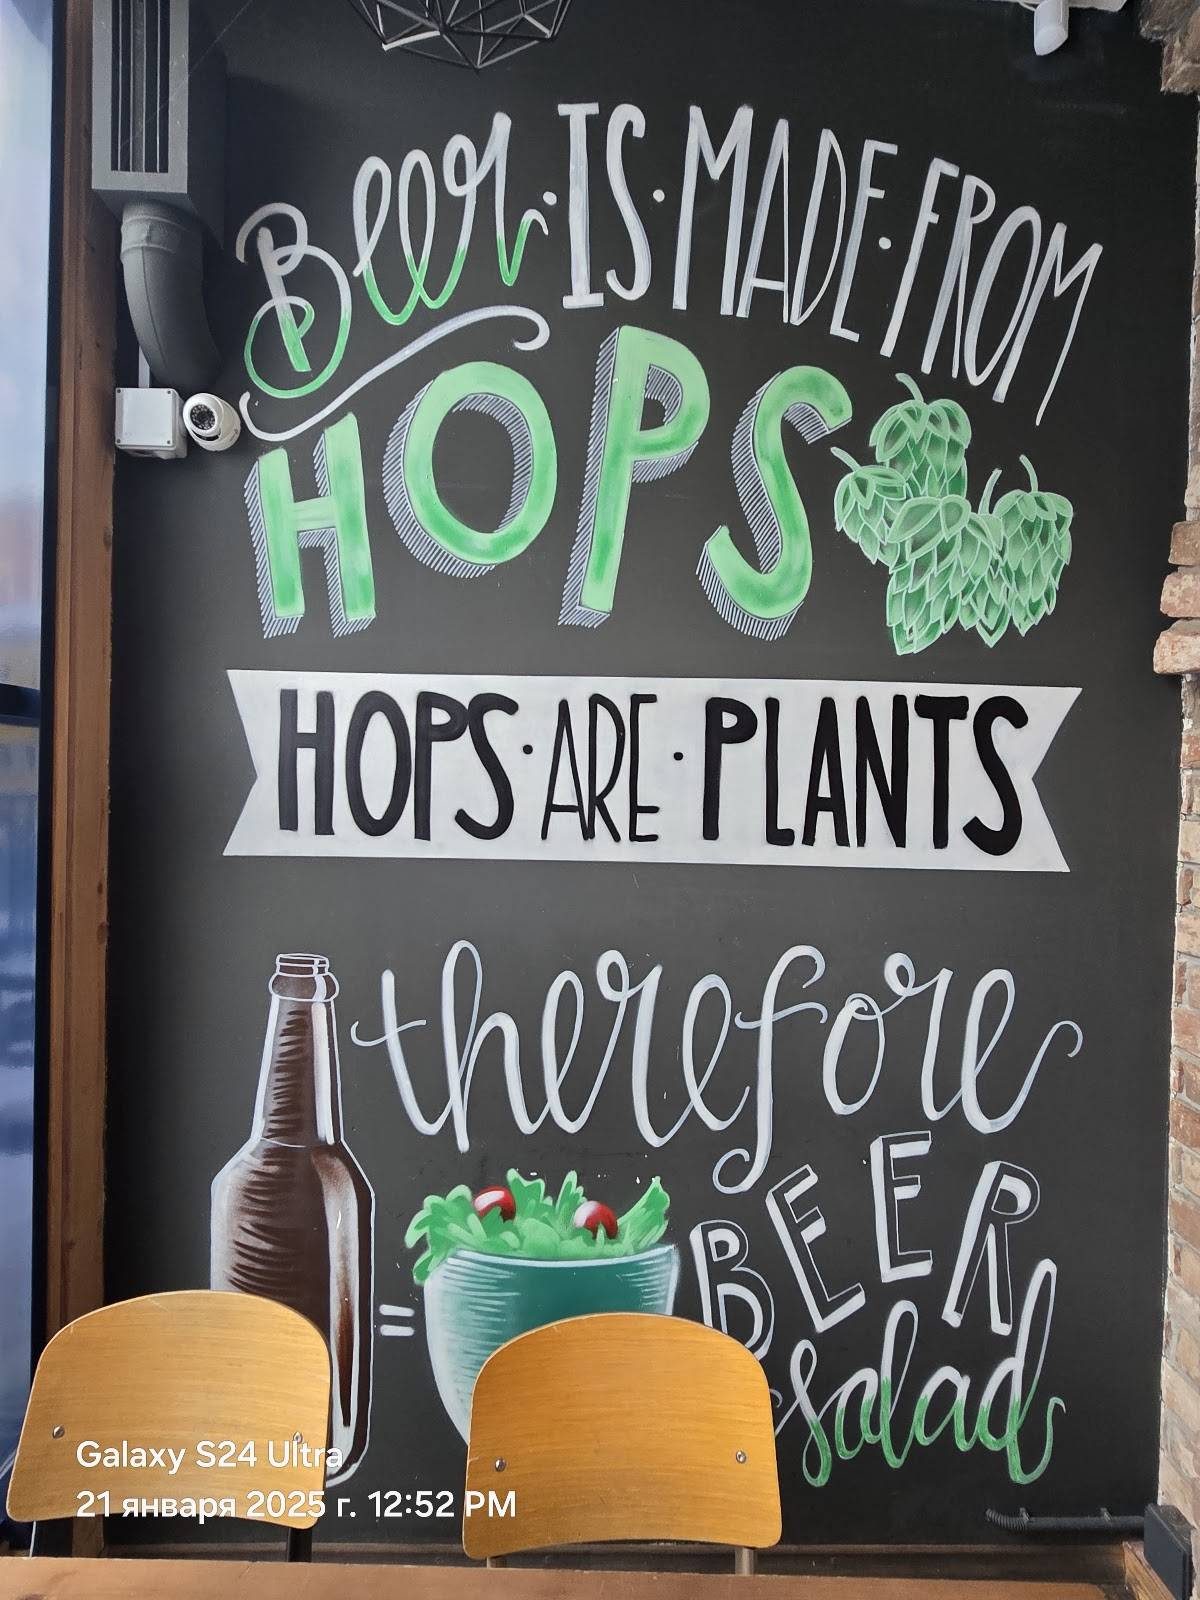 Beer · IS · MADE · FROM
HOPS
HOPS · ARE · PLANTS
therefore
BEER
=
salad
Galaxy S24 Ultra
21 января 2025 г. 12:52 PM